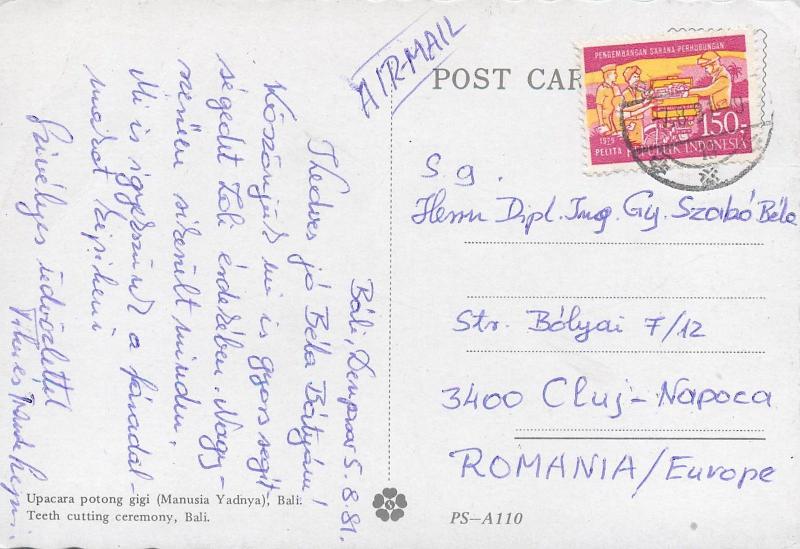 AIRMAIL
POST CAR
PENGEMBANGAN SARANA PERHUBUNGAN
1979
PELITA REPUBLIK INDONESIA
150.-
Báli, Denpasar 5.8.81.
Kedves jó Béla Bátyám!
Köszönjük mi is gyors segít-
ségedit Zoli érdekében. Nagy-
szerűen sikerült minden.
Mi is igyekszünk a fáradal-
makat kipihenni
Szívélyes üdvözlettel
Tihi és
S.g.
Herrn Dipl. Ing. Gy. Szabó Béla
Str. Bólyai 7/12
3400 Cluj-Napoca
ROMANIA/Europe
Upacara potong gigi (Manusia Yadnya), Bali.
Teeth cutting ceremony, Bali.
PS—A110